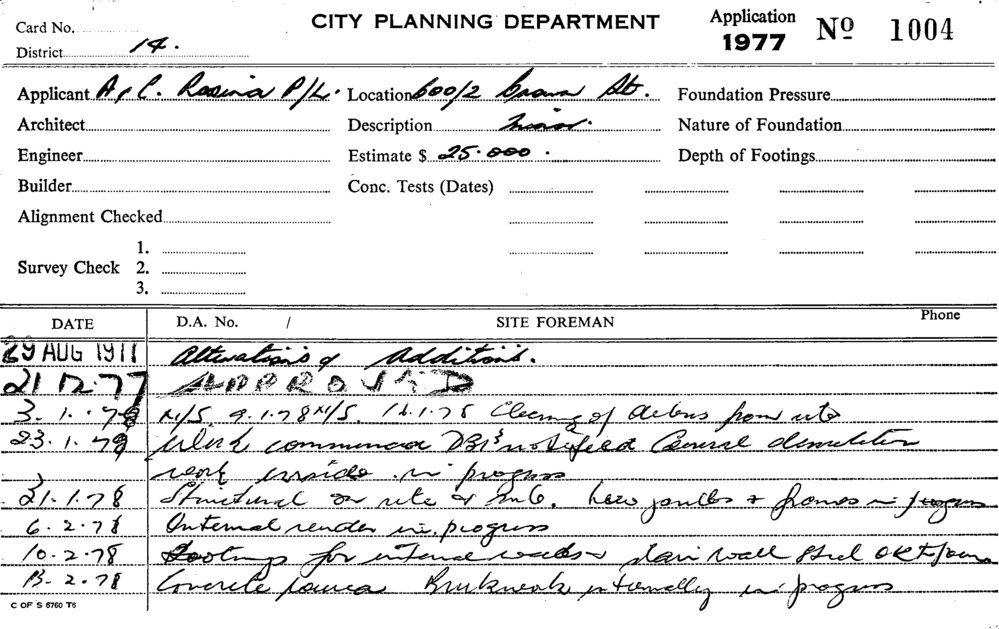 Card No.
CITY PLANNING DEPARTMENT
Application 1977 Nº 1004
District 14.
Applicant A. & C. Rosina P/L. Location 600/2 Crown St. Foundation Pressure
Architect Description Minor. Nature of Foundation
Engineer Estimate $ 25.000. Depth of Footings
Builder Conc. Tests (Dates)
Alignment Checked
1.
Survey Check 2.
3.
DATE D.A. No. / SITE FOREMAN Phone
29 AUG 1977 Alterations & Additions.
21 12.77 APPROVED
3.1.78 N/S. 9.1.78 N/S. 12.1.78 Clearing of debris from site
23.1.78 Work commenced notified General demolition
work inside in progress
31.1.78 Structural on site & joists & frames in progress
6.2.78 Internal render in progress
10.2.78 Footings for internal walls steel OK to pour
13.2.78 Concrete poured Brickwork internally in progress
C OF S 6760 T6